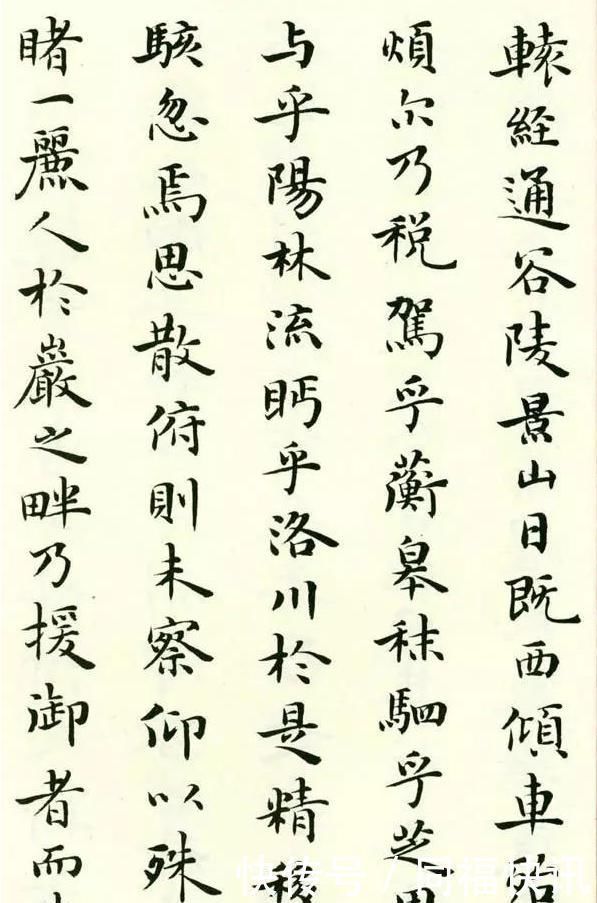 轅經通谷陵景山日既西傾車
煩尔乃税駕乎蘅皋秣駟乎芝
与乎陽林流眄乎洛川於是精移
駭忽焉思散俯則未察仰以殊
睹一麗人於巖之畔乃援御者而
快传号 / 同福快讯